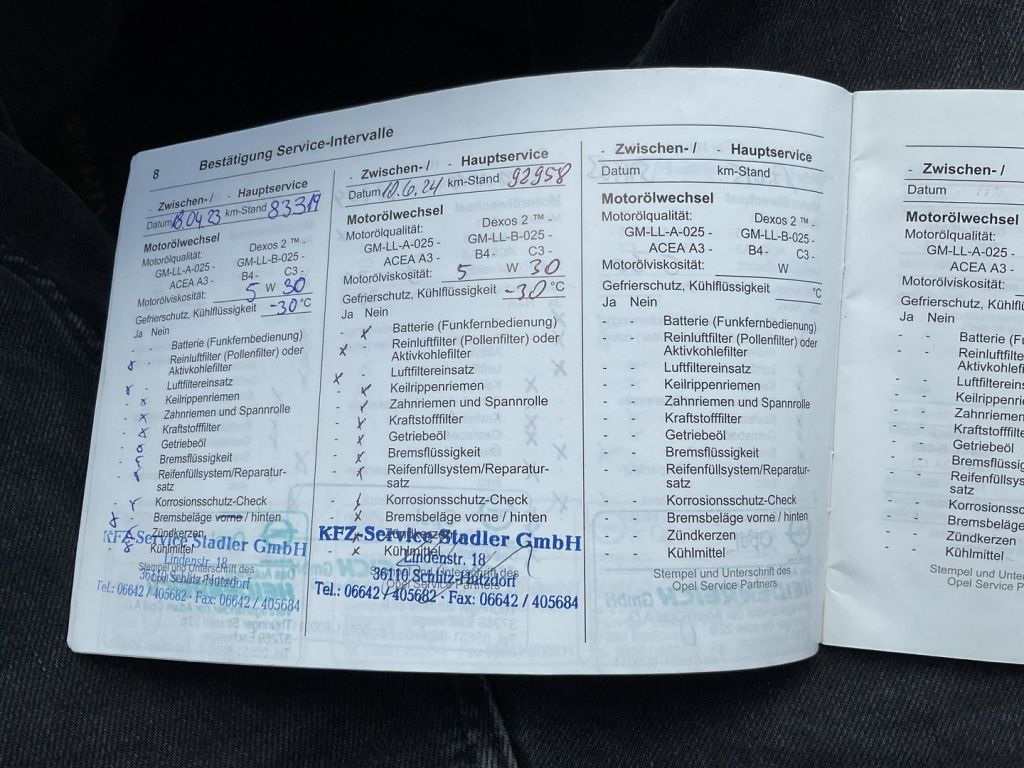 8 Bestätigung Service-Intervalle
- Zwischen- / - Hauptservice
Datum 18.04.23 km-Stand 83319
Motorölwechsel
Motorölqualität: Dexos 2 ™ -
GM-LL-A-025 - GM-LL-B-025 -
ACEA A3 - B4- C3 -
Motorölviskosität: 5 W 30
Gefrierschutz, Kühlflüssigkeit -30 °C
Ja Nein
- - Batterie (Funkfernbedienung)
x - Reinluftfilter (Pollenfilter) oder
Aktivkohlefilter
- x Luftfiltereinsatz
- x Keilrippenriemen
- x Zahnriemen und Spannrolle
- x Kraftstofffilter
- x Getriebeöl
- x Bremsflüssigkeit
- x Reifenfüllsystem/Reparatur-
satz
- x Korrosionsschutz-Check
x - Bremsbeläge vorne / hinten
Zündkerzen
Kühlmittel
KFZ-Service Stadler GmbH
Lindenstr. 18
36110 Schlitz-Hutzdorf
Stempel und Unterschrift des
Opel Service Partners
Tel.: 06642 / 405682 · Fax: 06642 / 405684
- Zwischen- / - Hauptservice
Datum 10.6.24 km-Stand 92958
Motorölwechsel
Motorölqualität: Dexos 2 ™ -
GM-LL-A-025 - GM-LL-B-025 -
ACEA A3 - B4 - C3 -
Motorölviskosität: 5 W 30
Gefrierschutz, Kühlflüssigkeit -30 °C
Ja Nein
- x Batterie (Funkfernbedienung)
x - Reinluftfilter (Pollenfilter) oder
Aktivkohlefilter
x - Luftfiltereinsatz
- x Keilrippenriemen
- x Zahnriemen und Spannrolle
- x Kraftstofffilter
- x Getriebeöl
- x Bremsflüssigkeit
- x Reifenfüllsystem/Reparatur-
satz
- x Korrosionsschutz-Check
- x Bremsbeläge vorne / hinten
- x Zündkerzen
- x Kühlmittel
KFZ-Service Stadler GmbH
Lindenstr. 18
36110 Schlitz-Hutzdorf
Stempel und Unterschrift des
Opel Service Partners
Tel.: 06642 / 405682 · Fax: 06642 / 405684
- Zwischen- / - Hauptservice
Datum km-Stand
Motorölwechsel
Motorölqualität: Dexos 2 ™ -
GM-LL-A-025 - GM-LL-B-025 -
ACEA A3 - B4- C3 -
Motorölviskosität: W
Gefrierschutz, Kühlflüssigkeit °C
Ja Nein
- - Batterie (Funkfernbedienung)
- - Reinluftfilter (Pollenfilter) oder
Aktivkohlefilter
- - Luftfiltereinsatz
- - Keilrippenriemen
- - Zahnriemen und Spannrolle
- - Kraftstofffilter
- - Getriebeöl
- - Bremsflüssigkeit
- - Reifenfüllsystem/Reparatur-
satz
- - Korrosionsschutz-Check
- - Bremsbeläge vorne / hinten
- - Zündkerzen
- - Kühlmittel
Stempel und Unterschrift des
Opel Service Partners
- Zwischen- /
Datum
Motorölwechsel
Motorölqualität:
GM-LL-A-025 -
ACEA A3 -
Motorölviskosität:
Gefrierschutz, Kühlfl
Ja Nein
- - Batterie (Fu
- - Reinluftfilte
Aktivkohlef
- - Luftfilterein
- - Keilrippenri
- - Zahnriemen
- - Kraftstofffilte
- - Getriebeöl
- - Bremsflüssig
- - Reifenfüllsy
satz
- - Korrosionssc
- - Bremsbeläge
- - Zündkerzen
- - Kühlmittel
Stempel und Unt
Opel Service P